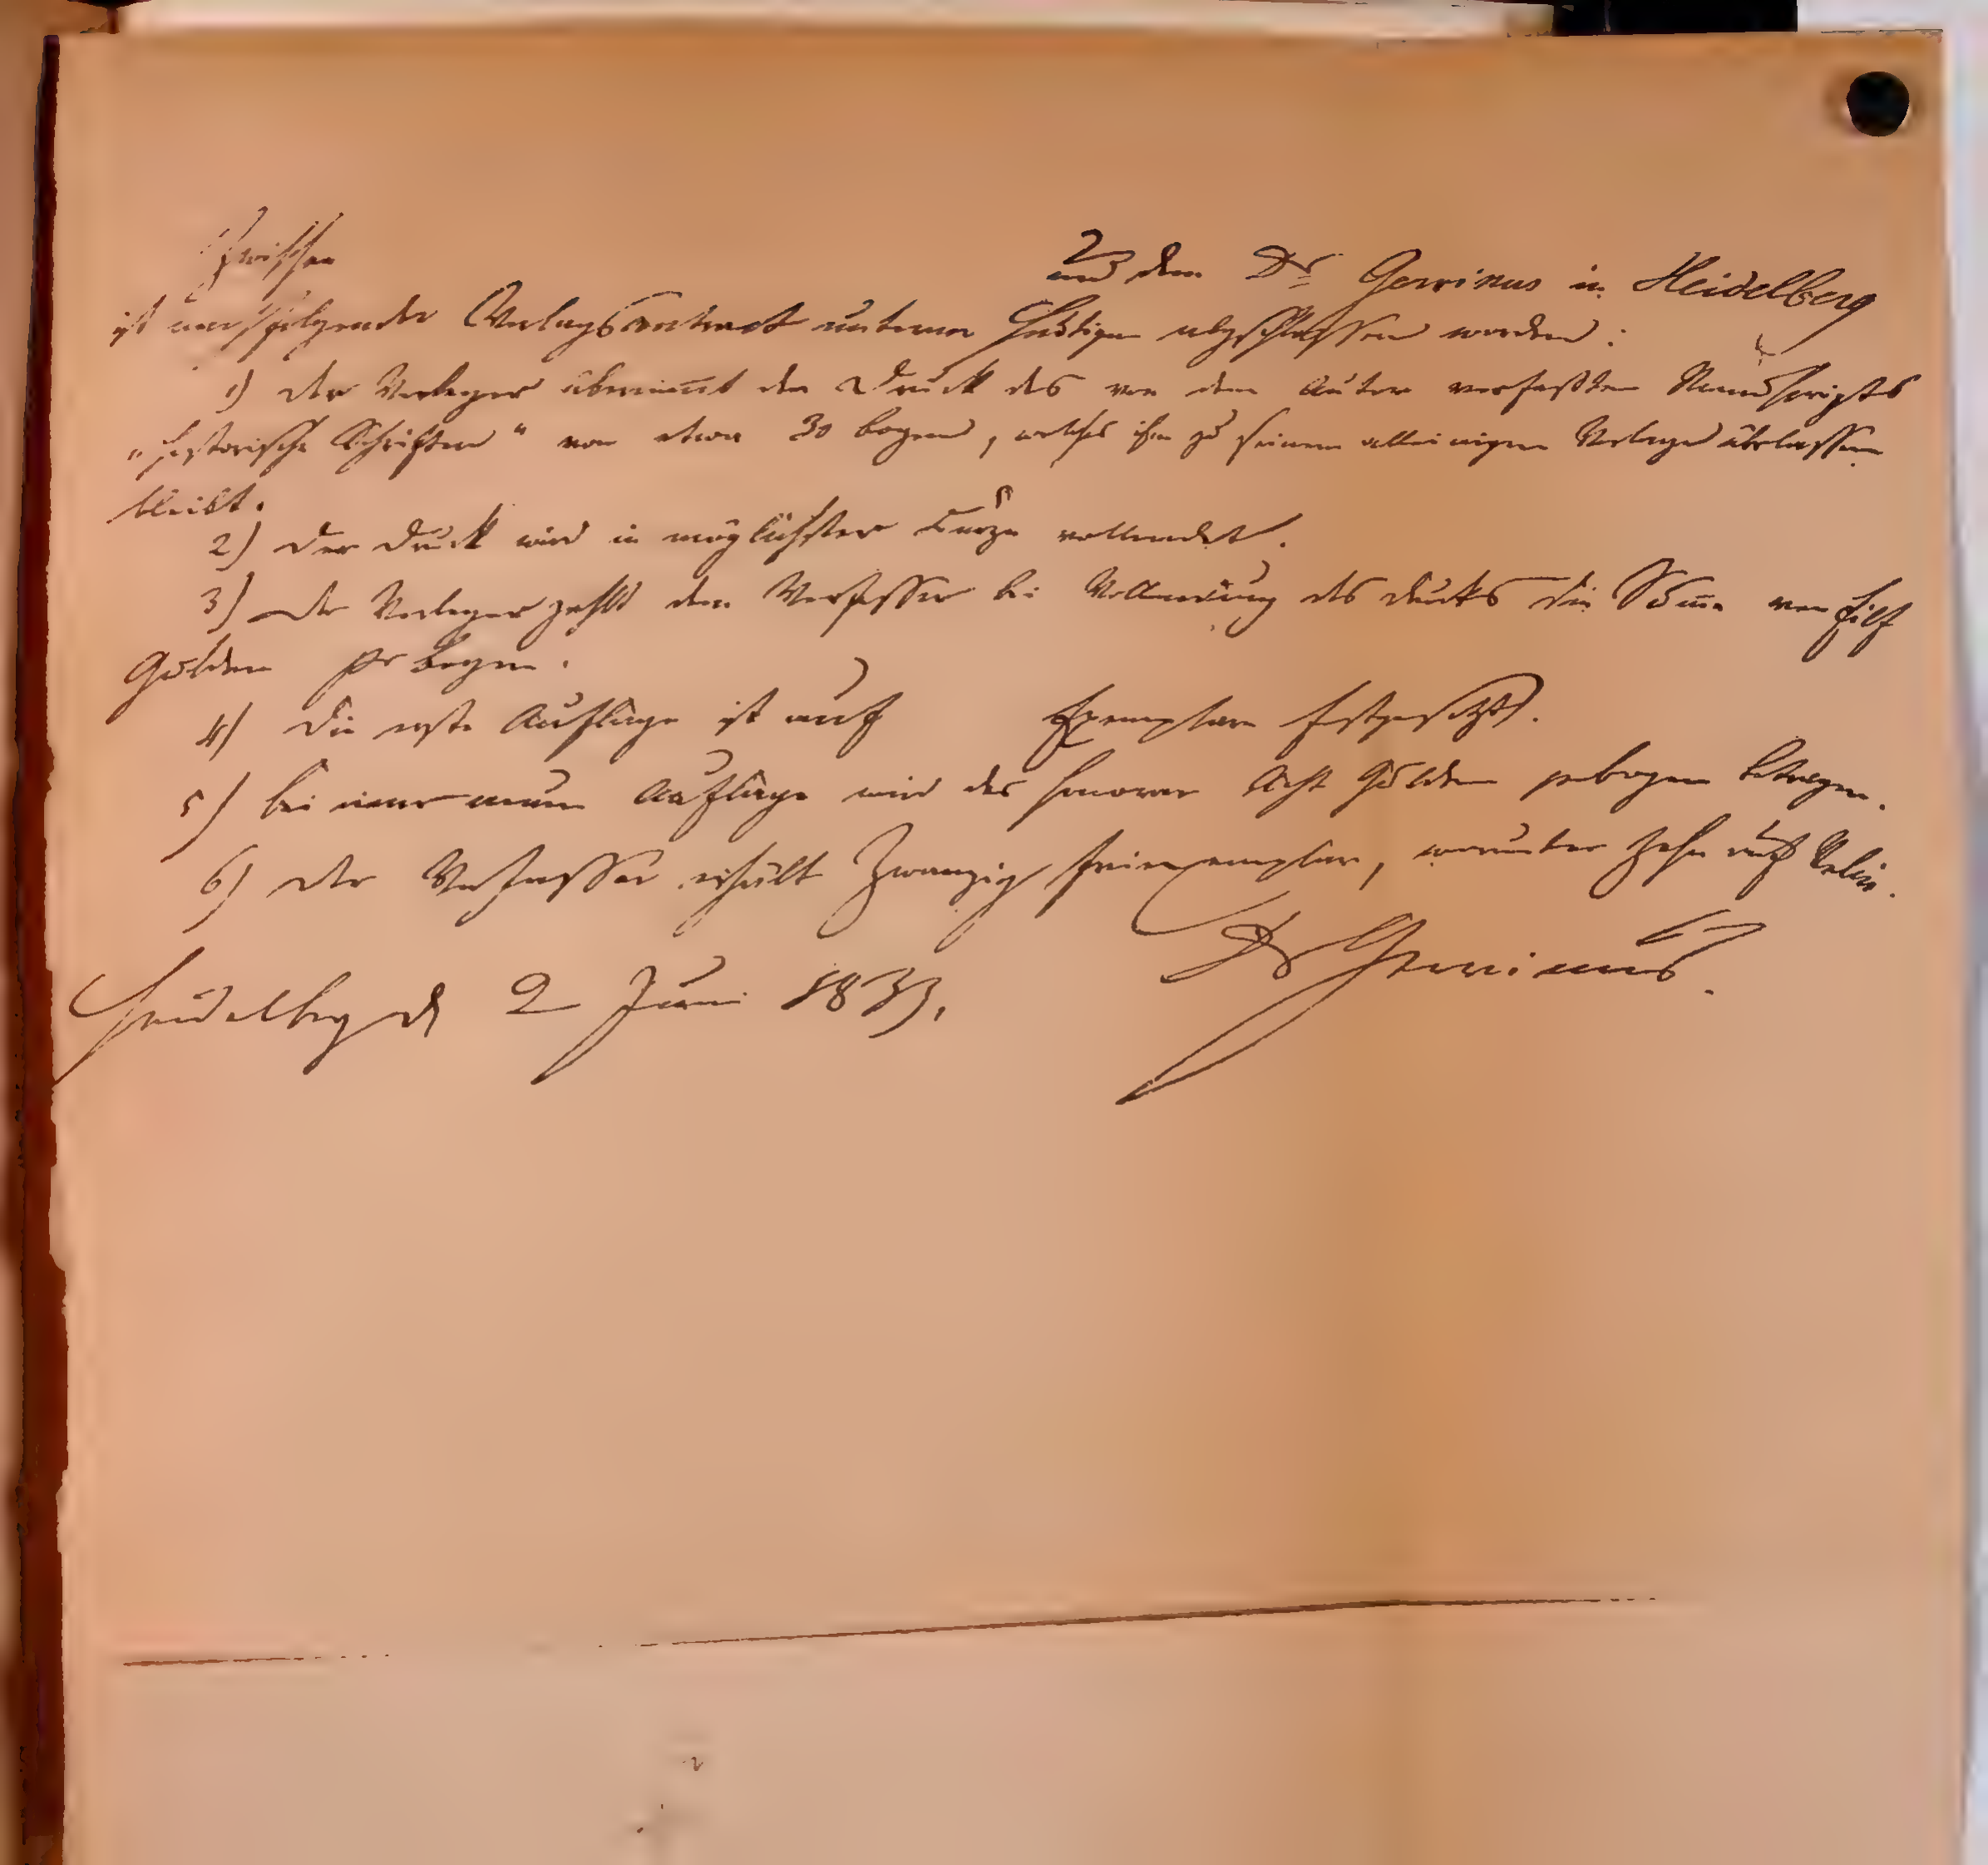 Zwischen und dem Dr Gervinus in Heidelberg
ist nachfolgender Verlagscontract unterm Heutigen abgeschlossen worden:
1) Der Verleger übernim̄t den Druck des von dem Autor verfaßten Manuscripts
„historische Schriften“ von etwa 30 Bogen, welches ihm zu seinem alleinigen Verlage überlassen
bleibt.
2) Der Druck wird in möglichster Kürze vollendet.
3) Der Verleger zahlt dem Verfasser bei Vollendung des Drucks die Som̄e von Eilf
Gulden pr Bogen.
4) Die erste Auflage ist auf Exemplare festgesetzt.
5) Bei einer neuen Auflage wird das Honorar Acht Gulden pr Bogen betragen.
6) Der Verfasser erhält Zwanzig Freiexemplare, worunter Zehn auf Velin.
Dr Gervinus.
Heidelberg d 2 Juni 1833.